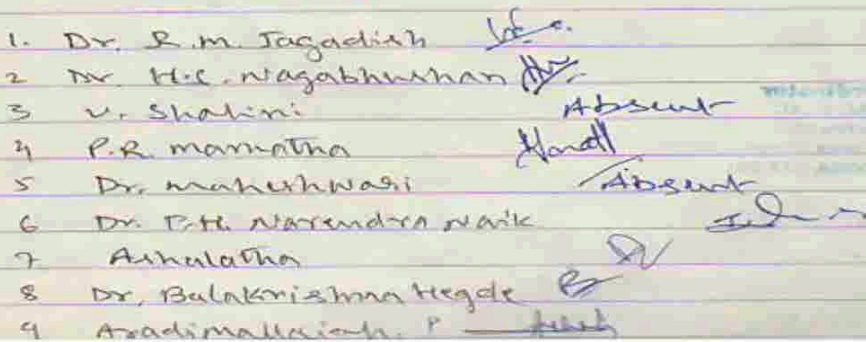 1. Dr. R.M. Jagadish
2 Dr. H.C. Nagabhushan
3 V. Shalini Absent
4 P.R. Mamatha
5 Dr. Maheshwari Absent
6 Dr. P.H. Narendra Naik
7 Ashalatha
8 Dr. Balakrishna Hegde
9 Aradimallaiah. P